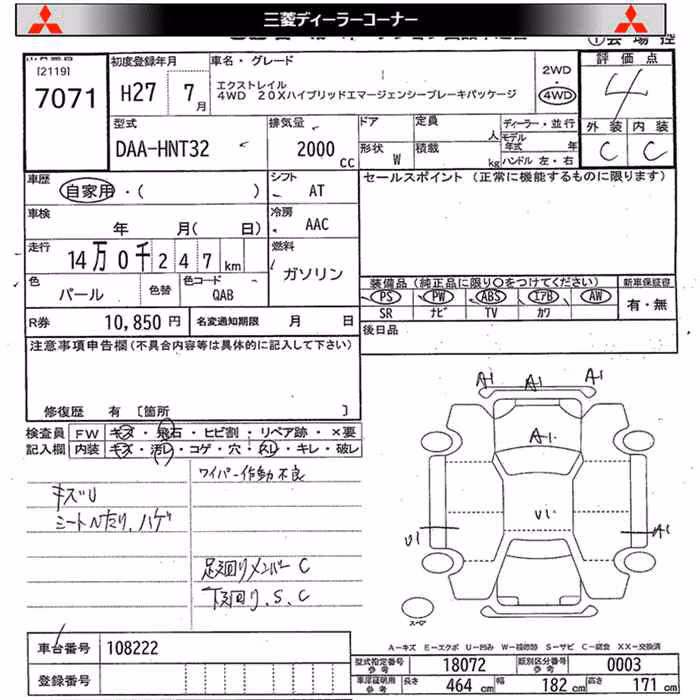 三菱ディーラーコーナー
[2119]
7071
初度登録年月
H27 7月
車名・グレード
エクストレイル
4WD 20Xハイブリッドエマージェンシーブレーキパッケージ
2WD
4WD
評価点
4
外装 内装
C C
型式
DAA-HNT32
排気量
2000 CC
ドア 定員 人
形状 W 積載 kg
ディーラー・並行
モデル年式 年
ハンドル 左・右
車歴
自家用・( )
シフト
AT
セールスポイント(正常に機能するものに限ります)
車検
年 月( 日)
冷房
AAC
走行
14万0千247km
燃料
ガソリン
色
パール
色替
色コード
QAB
装備品(純正品に限り○をつけてください)
PS PW ABS エアB AW
SR ナビ TV カワ
新車保証書
有・無
R券 10,850円 名変通知期限 月 日
後日品
注意事項申告欄(不具合内容等は具体的に記入して下さい)
修復歴 有 [箇所 ]
検査員記入欄
FW キズ・飛石・ヒビ割・リペア跡・×要
内装 キズ・汚レ・コゲ・穴・スレ・キレ・破レ
ワイパー作動不良
キズU
シートヘたり、ハゲ
足廻りメンバーC
下廻り、S、C
A1 A1 A1
A1
U1
U1 A1
スペア
A－キズ E－エクボ U－凹み W－補修跡 S－サビ C－腐食 XX－交換済
車台番号 108222
登録番号
型式指定番号参考 18072 類別区分番号参考 0003
車庫証明用参考 長さ 464cm 幅 182cm 高さ 171cm